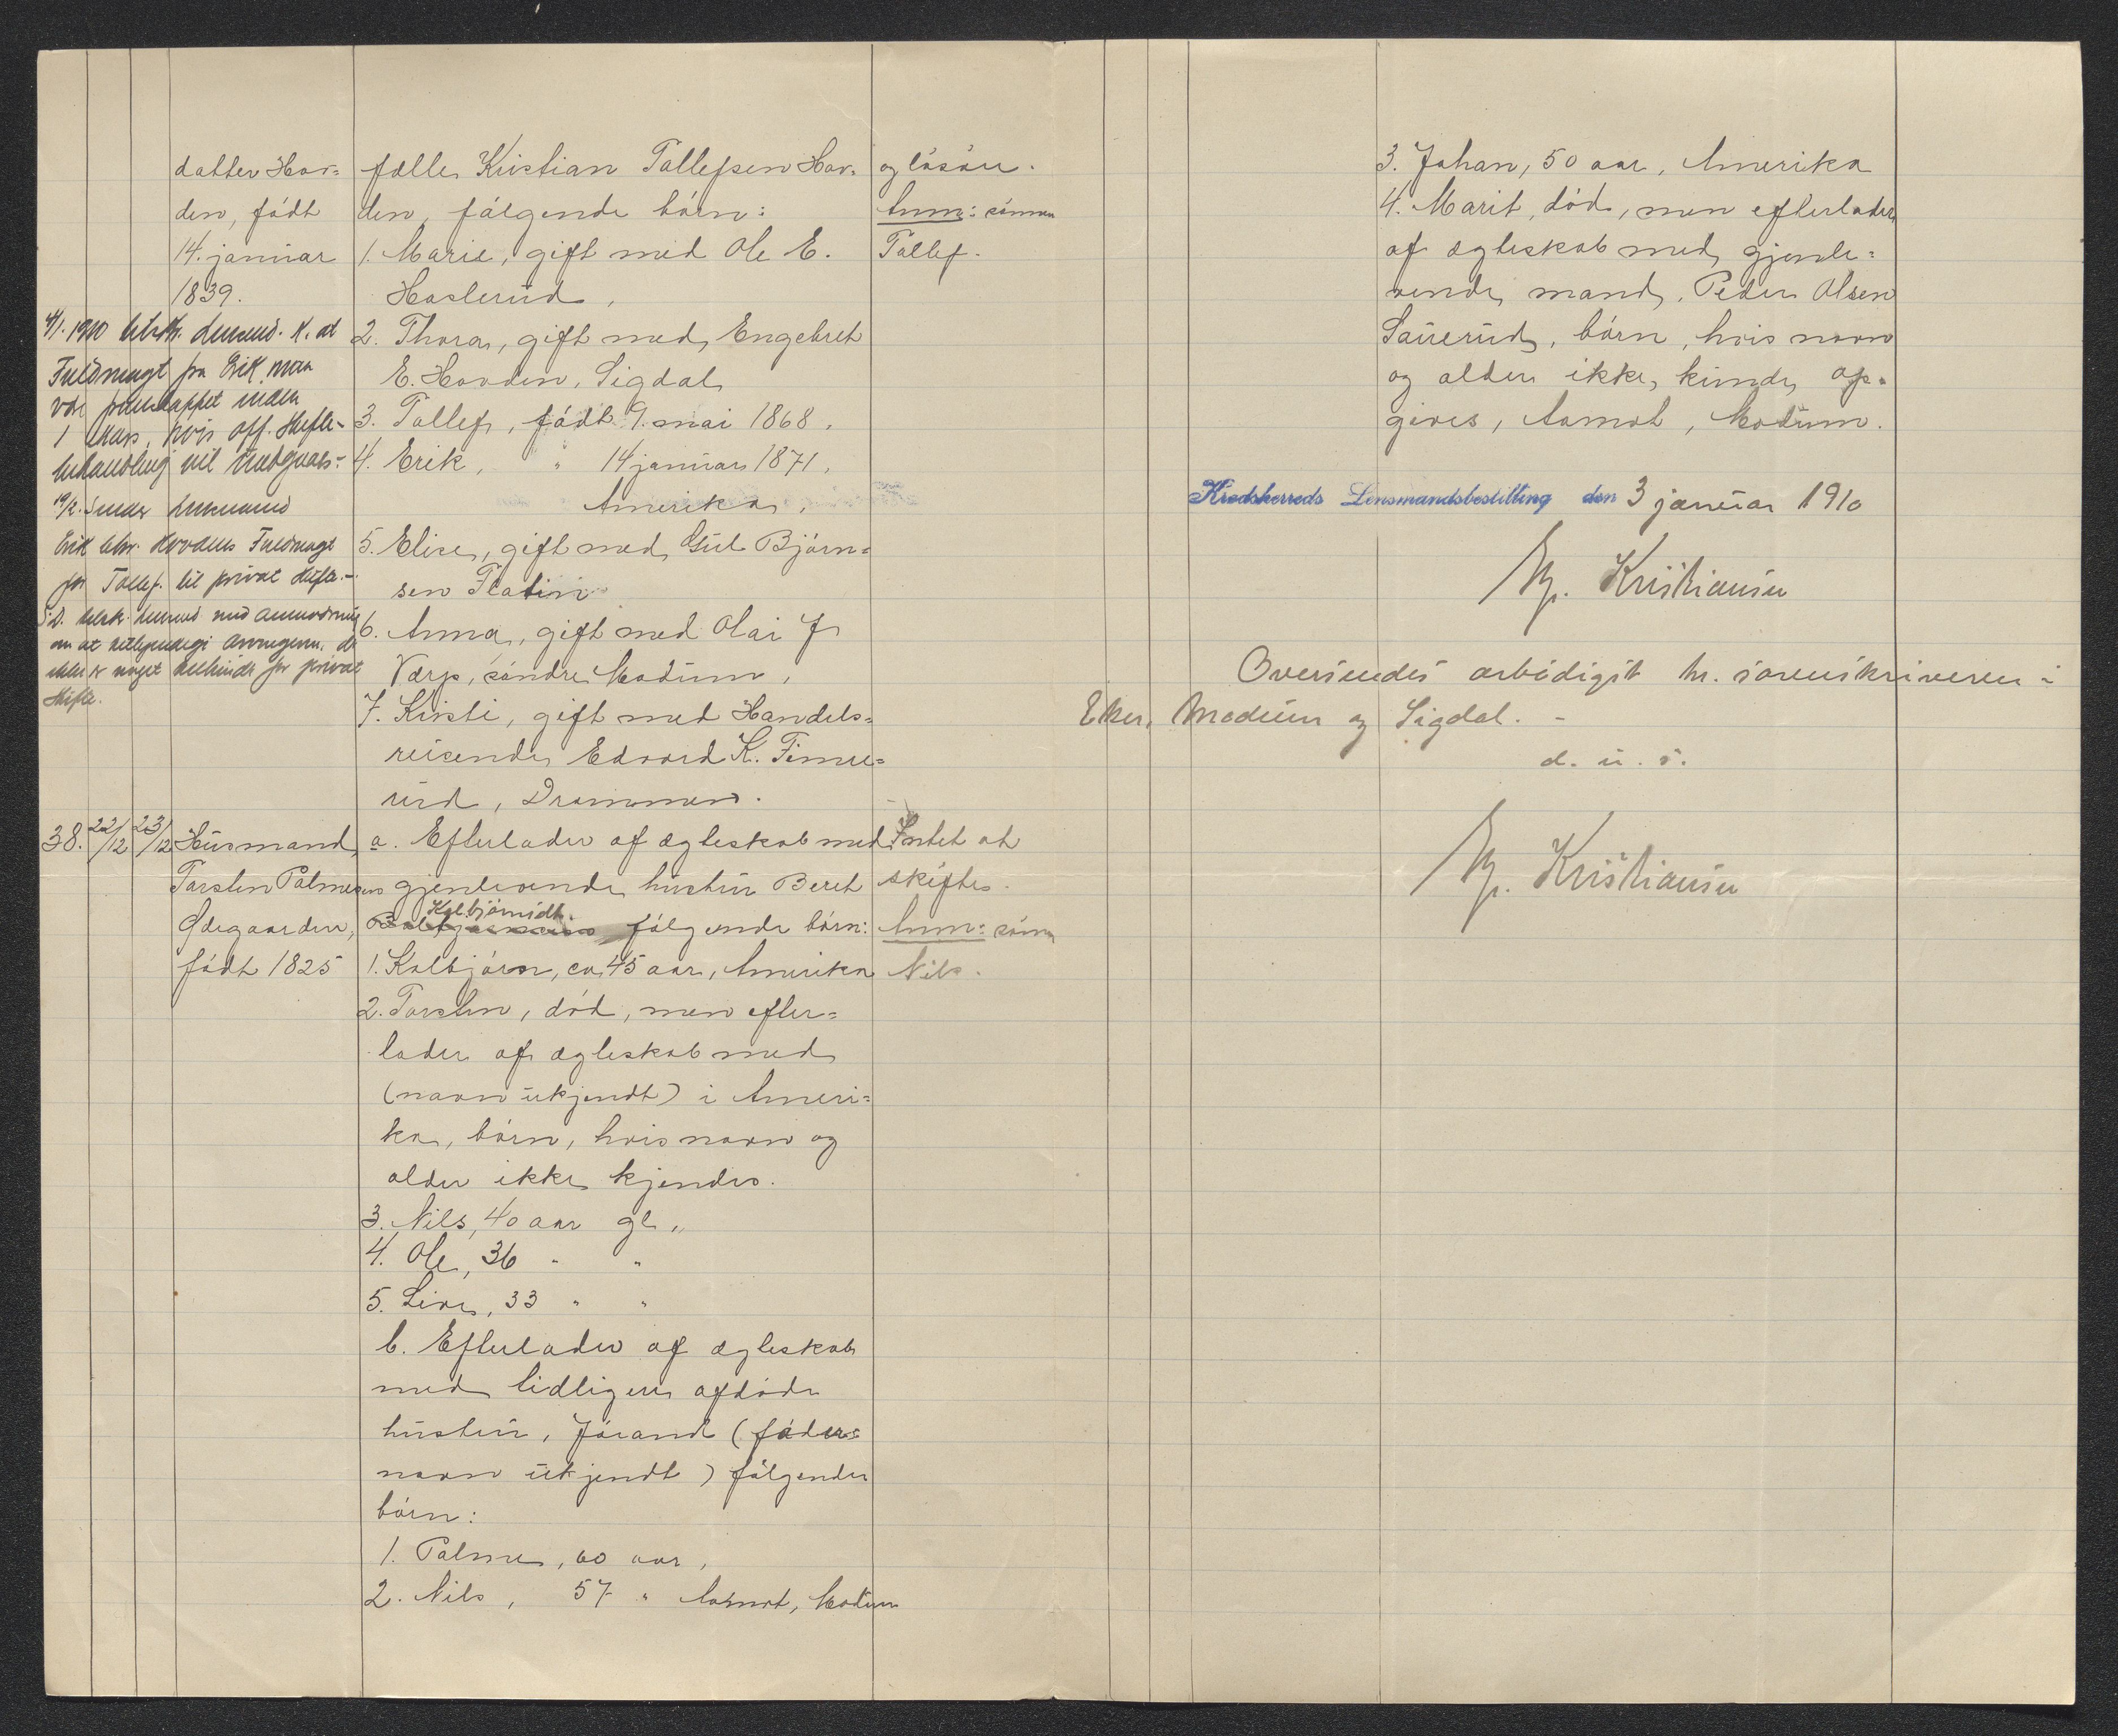 datter Hov=
den, født
14. januar
1839.
fælle Kristian Tollefsen Hov=
den, følgende børn:
1. Marie, gift med Ole E.
Haslerud,
2. Thora, gift med Engebret
E. Hovden, Sigdal
3. Tollef, født 9. mai 1868,
4. Erik, " 14 januar 1871,
Amerika,
5. Elise, gift med Gul Bjørn=
sen Flatin
6. Anna, gift med Olai J
Værp, søndre Modum,
7. Kirsti, gift med Handels=
reisende Edvard K. Fimre=
rud, Drammen.
og løsøre.
Anm: sønnen
Tollef.
4/1. 1910 lensmd. K. at
Fuldmagt fra Erik maa
være inden
1 Mars, hvis off. Skifte-
behandling vil undgaaes.-
19/2. Sender lensmand
Erik Chr. Hovdens Fuldmagt
for Tollef. til privat Skifte.-
S.D. lensmd med anmodning
om at
noget for privat
Skifte.
38. 22/12 23/12 Husmand
Torsten Palmesen
Ødegaarden,
født 1825
a. Efterlader af ægteskab med
gjenlevende hustru Beret
Kolbjørnsdt.
følgende børn:
1. Kolbjørn, ca 45 aar, Amerika
2. Torsten, død, men efter=
lader af ægteskab med
(navn ukjendt) i Ameri=
ka, børn, hvis navn og
alder ikke kjendes.
3. Nils, 40 aar gl.,
4. Ole, 36 " "
5. Live, 33 " "
b. Efterlader af ægteskab
med tidligere afdøde
hustru, Jørand (føders
navn ukjendt) følgende
børn:
1. Palme, 60 aar,
2. Nils, 57 " Aamot, Modum
Intet at
skiftes.
Anm: søn
Nils.
3. Johan, 50 aar, Amerika
4. Marit, død, men efterlader
af ægteskab med gjenle=
vende mand, Peder Olsen
Sauerud, børn, hvis navn
og alder ikke kunde op=
gives, Aamot, Modum.
Krødsherreds Lensmandsbestilling den 3 januar 1910
Kristiansen
Oversendes ærbødigst hr. sorenskriveren i
Eker, Modum og Sigdal. -
d. u. s.
Kristiansen